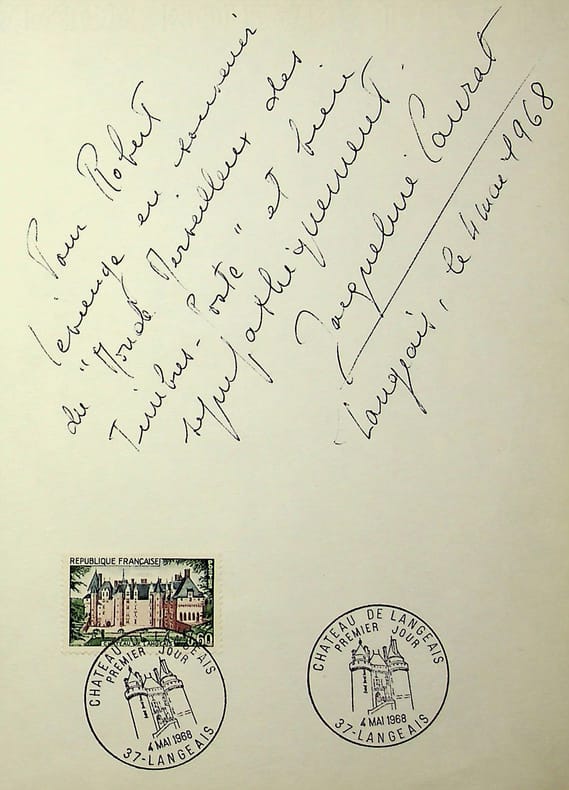 Pour Robert
Levienge en souvenir
du "Monde Merveilleux des
Timbres-Poste" et bien
sympathiquement.
Jacqueline Caurat
Langeais, le 4 mai 1968
REPUBLIQUE FRANÇAISE
CHATEAU DE LANGEAIS
0,60
CHATEAU DE LANGEAIS
PREMIER JOUR
4 MAI 1968
37-LANGEAIS
CHATEAU DE LANGEAIS
PREMIER JOUR
4 MAI 1968
37-LANGEAIS